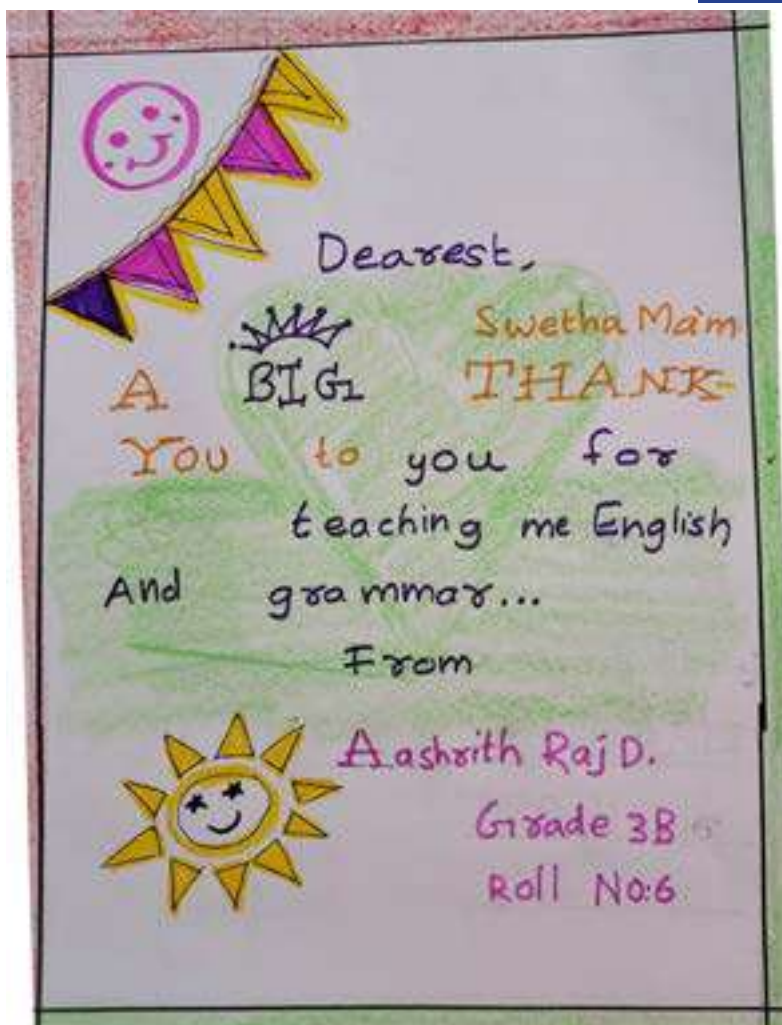 Dearest,
Swetha Ma'm
A BIG THANK-
You to you for
teaching me English
And grammar...
From
Aashrith Raj D.
Grade 3B
Roll No:6